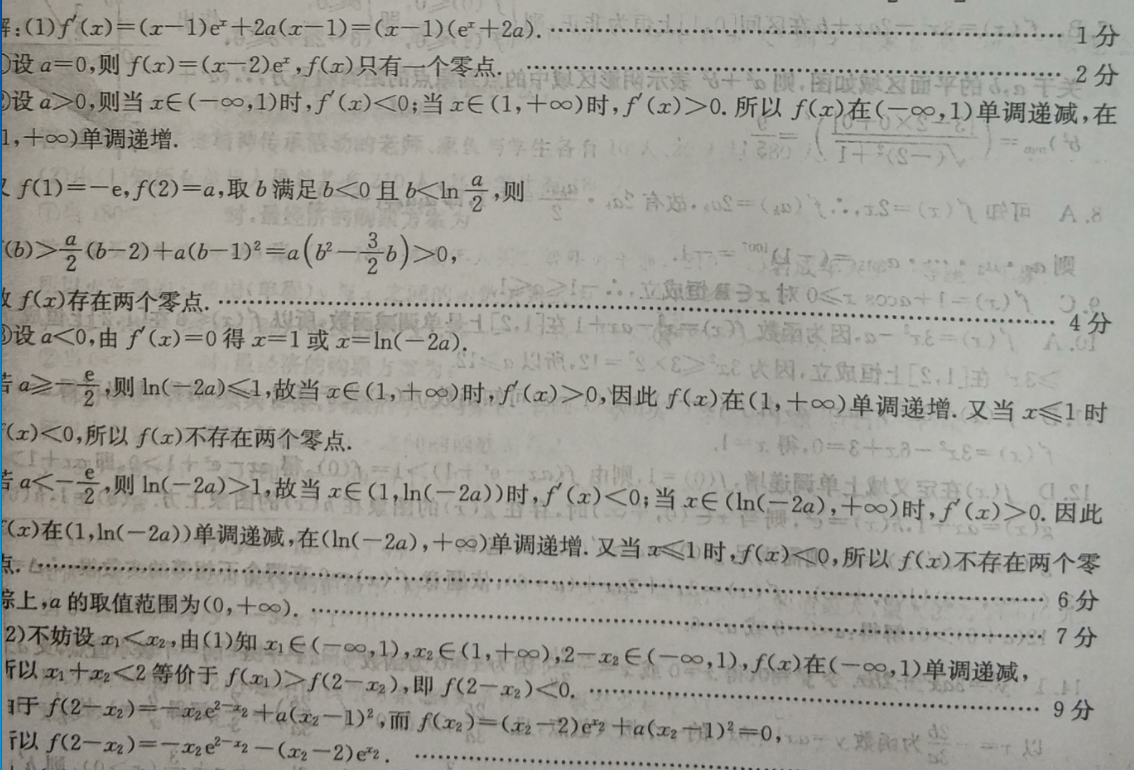 解:(1)f′(x)=(x−1)eˣ+2a(x−1)=(x−1)(eˣ+2a). ………… 1分
①设a=0,则f(x)=(x−2)eˣ,f(x)只有一个零点. ………… 2分
②设a>0,则当x∈(−∞,1)时,f′(x)<0;当x∈(1,+∞)时,f′(x)>0.所以f(x)在(−∞,1)单调递减,在
1,+∞)单调递增.
又f(1)=−e,f(2)=a,取b满足b<0且b<ln a/2,则
(b)>a/2(b−2)+a(b−1)²=a(b²−3/2b)>0,
故f(x)存在两个零点. ………… 4分
③设a<0,由f′(x)=0得x=1或x=ln(−2a).
若a≥−e/2,则ln(−2a)≤1,故当x∈(1,+∞)时,f′(x)>0,因此f(x)在(1,+∞)单调递增.又当x≤1时
f(x)<0,所以f(x)不存在两个零点.
若a<−e/2,则ln(−2a)>1,故当x∈(1,ln(−2a))时,f′(x)<0;当x∈(ln(−2a),+∞)时,f′(x)>0.因此
f(x)在(1,ln(−2a))单调递减,在(ln(−2a),+∞)单调递增.又当x≤1时,f(x)<0,所以f(x)不存在两个零
点. ………… 6分
综上,a的取值范围为(0,+∞). ………… 7分
2)不妨设x₁<x₂,由(1)知x₁∈(−∞,1),x₂∈(1,+∞),2−x₂∈(−∞,1),f(x)在(−∞,1)单调递减,
所以x₁+x₂<2等价于f(x₁)>f(2−x₂),即f(2−x₂)<0. ………… 9分
由于f(2−x₂)=−x₂e^{2−x₂}+a(x₂−1)²,而f(x₂)=(x₂−2)e^{x₂}+a(x₂−1)²=0,
所以f(2−x₂)=−x₂e^{2−x₂}−(x₂−2)e^{x₂}. …………